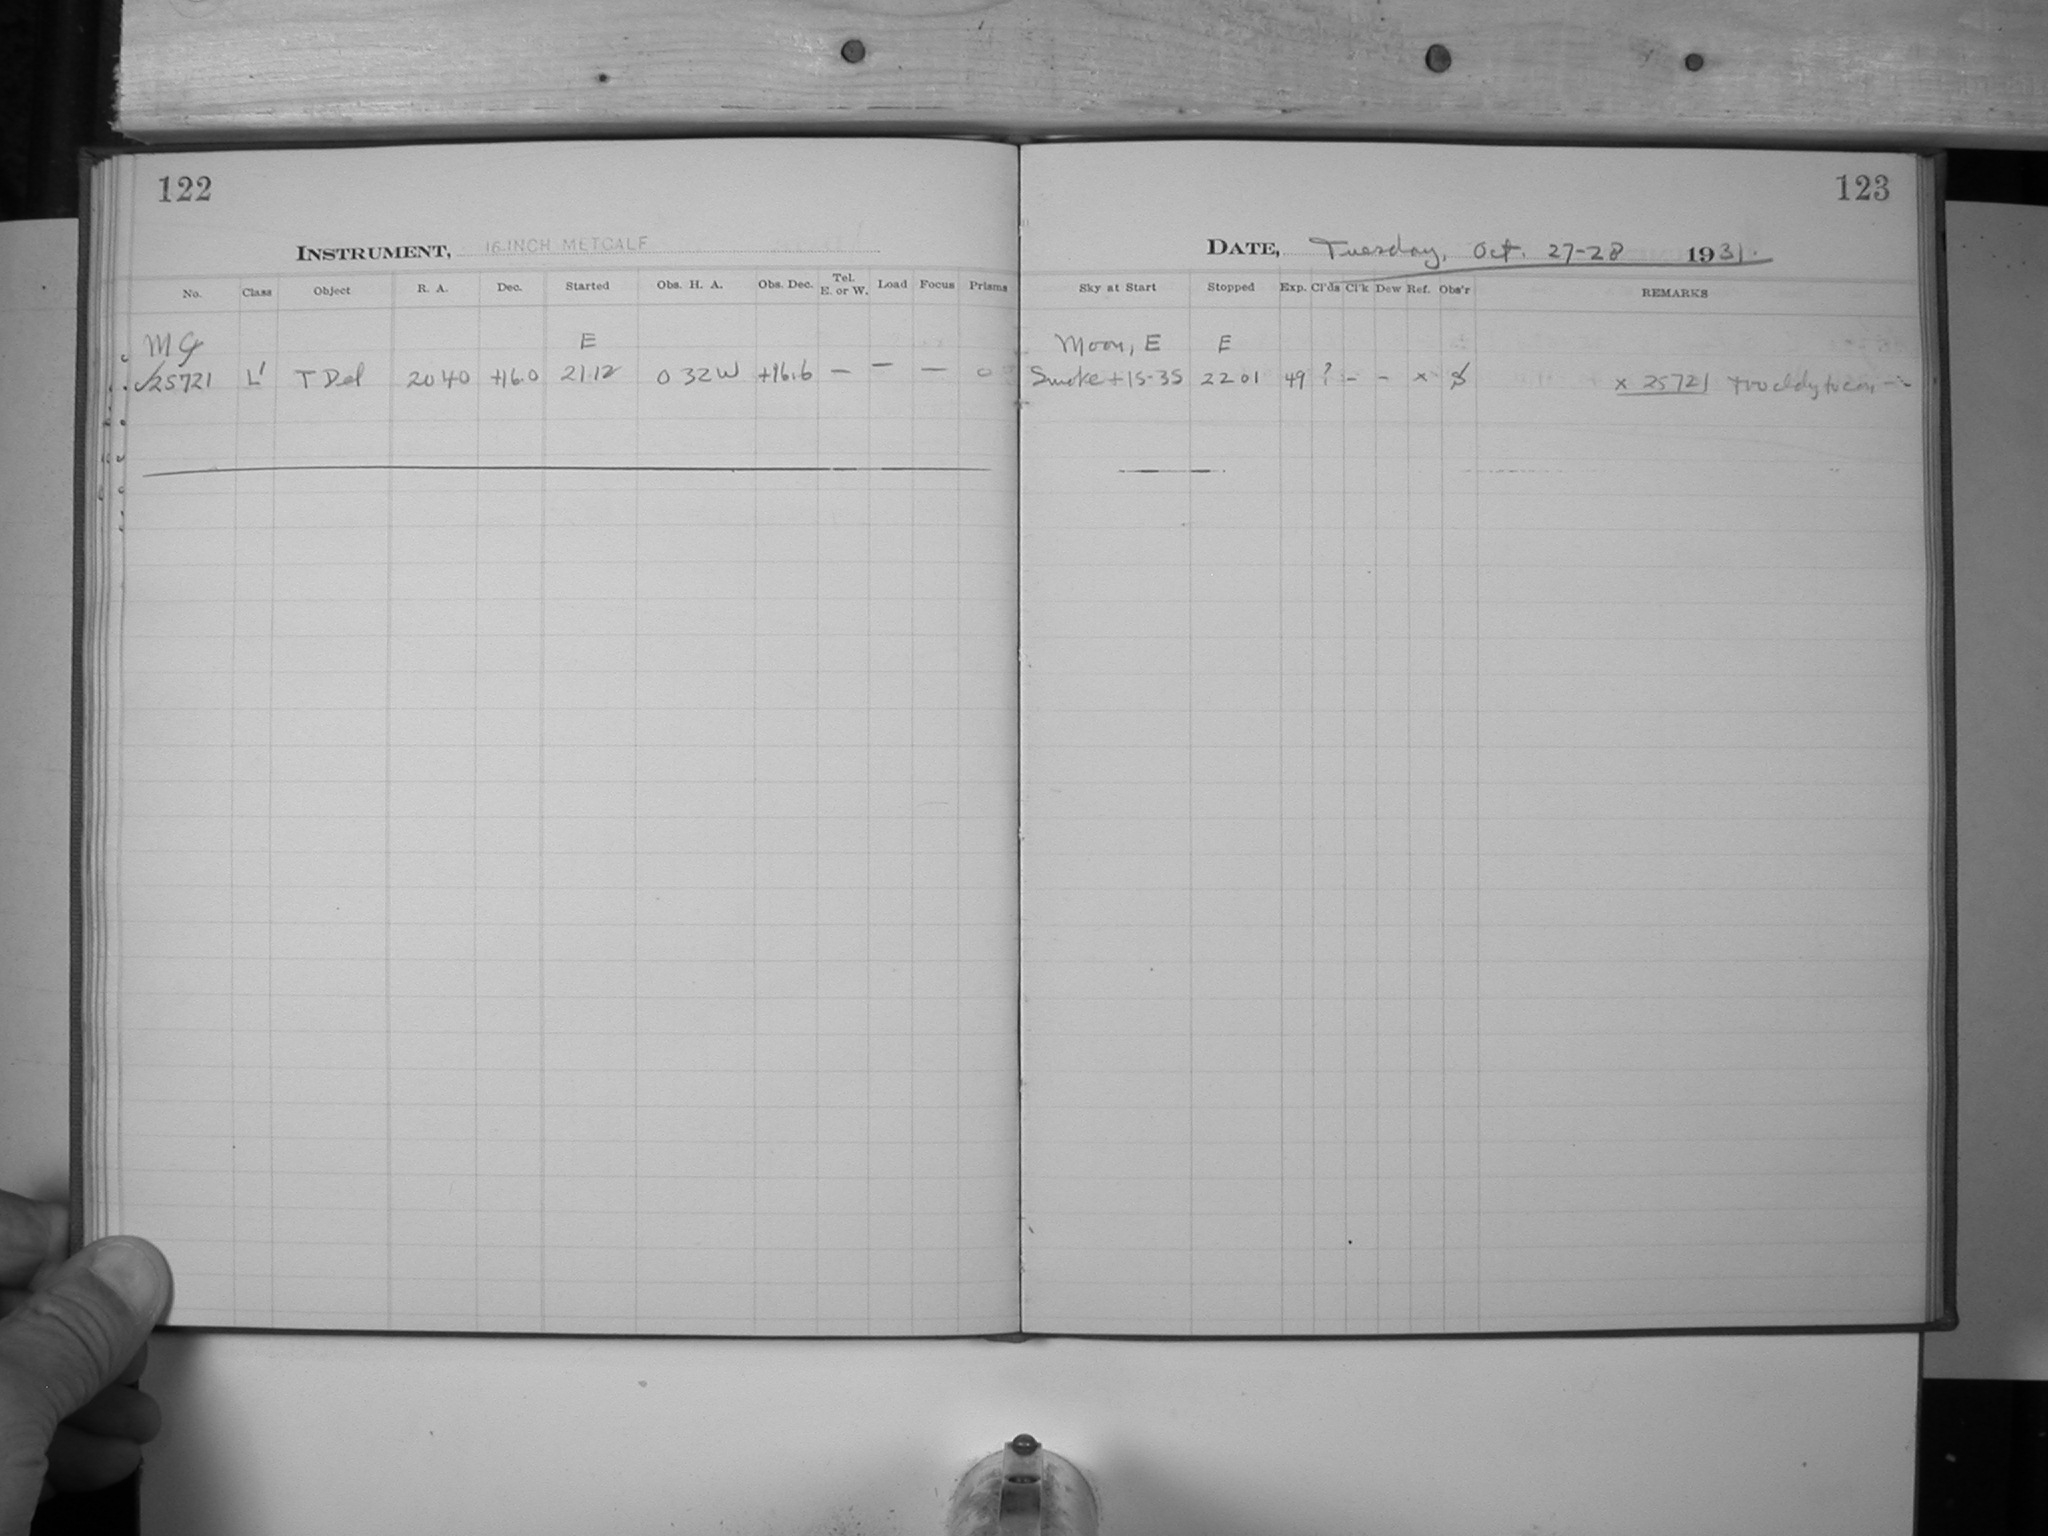 122
INSTRUMENT, 16-INCH METCALF
No. Class Object R. A. Dec. Started Obs. H. A. Obs. Dec. Tel. E. or W. Load Focus Prisms
E
25721 L' T Del 20 40 +16.0 21 12 0 32 W +16.6 — — — 0
123
DATE, Tuesday, Oct. 27-28 1931.
Sky at Start Stopped Exp. Cl'ds Cl'k Dew Ref. Obs'r REMARKS
Moon, E E
Smoke +15-35 22 01 49 ? - - x x 25721